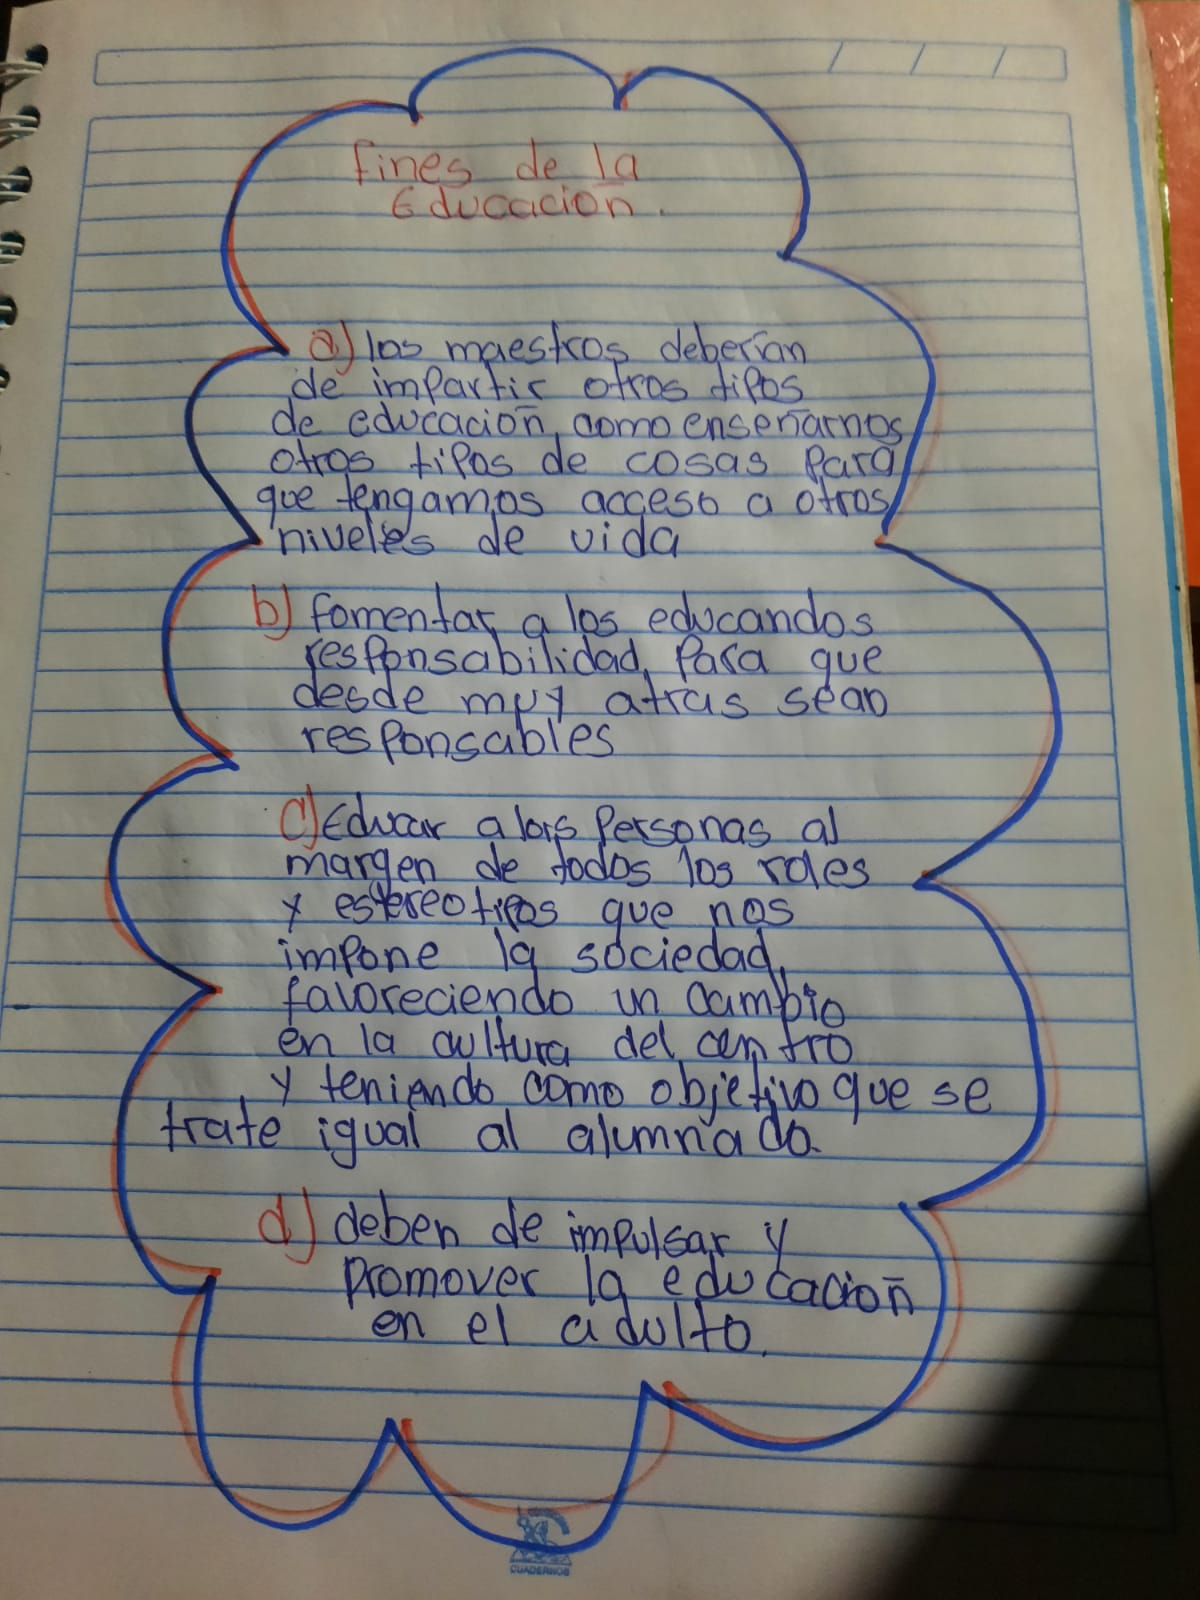 fines de la
Educación.
a) los maestros deberían
de impartir otros tipos
de educación, como enseñarnos
otros tipos de cosas para
que tengamos acceso a otros
niveles de vida
b) fomentar a los educandos
responsabilidad, para que
desde muy atras sean
responsables
c) Educar a las personas al
margen de todos los roles
y estereotipos que nos
impone la sociedad,
favoreciendo un cambio
en la cultura del centro
y teniendo como objetivo que se
trate igual al alumnado.
d) deben de impulsar y
promover la educación
en el adulto.
CUADERNOS